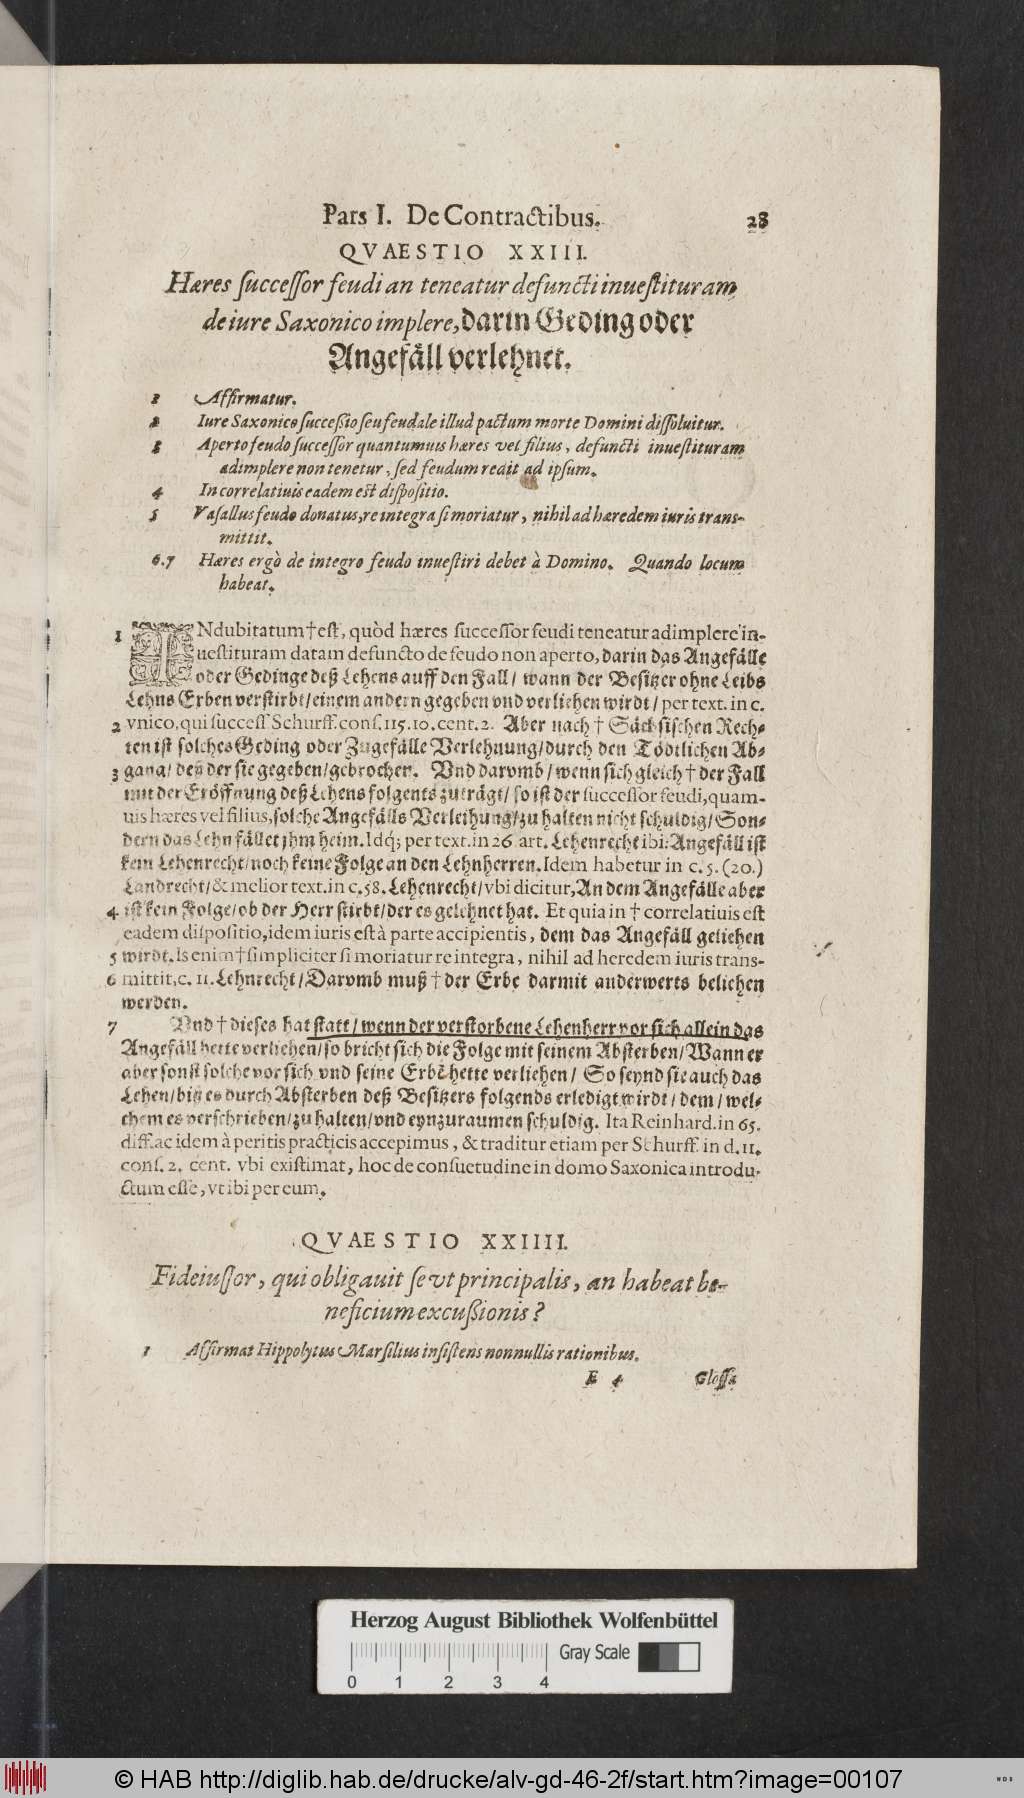 Pars I. De Contractibus. 28
QVAESTIO XXIII.
Hæres ſucceſſor feudi an teneatur defuncti inueſtituram
de iure Saxonico implere, darin Geding oder
Angefäll verlehnet.
1 Affirmatur.
2 Iure Saxonico ſucceßio ſeu feudale illud pactum morte Domini diſſoluitur.
3 Aperto feudo ſucceſſor quantumuis hæres vel filius, defuncti inueſtituram
adimplere non tenetur, ſed feudum redit ad ipſum.
4 In correlatiuis eadem eſt diſpoſitio.
5 Vaſallus feudo donatus, re integra ſi moriatur, nihil ad hæredem iuris trans-
mittit.
6.7 Hæres ergò de integro feudo inueſtiri debet à Domino. Quando locum
habeat.
1 INdubitatum † eſt, quòd hæres ſucceſſor feudi teneatur adimplere in-
ueſtituram datam defuncto de feudo non aperto, darin das Angefälle
oder Gedinge deß Lehens auff den Fall / wann der Beſitzer ohne Leibs
Lehns Erben verſtirbt / einem andern gegeben vnd verliehen wirdt / per text. in c.
2 vnico, qui ſucceſſ Schurff. conſ. 115. 10. cent. 2. Aber nach † Sächſiſchen Rech-
ten iſt ſolches Geding oder Zugefälle Verlehnung / durch den Tödtlichen Ab-
3 gang / deß der ſie gegeben / gebrochen. Vnd darvmb / wenn ſich gleich † der Fall
mit der Eröffnung deß Lehens folgents zuträgt / ſo iſt der ſucceſſor feudi, quam-
uis hæres vel filius, ſolche Angefälls Verleihung / zu halten nicht ſchuldig / Son-
dern das Lehn fället jhm heim. Idq; per text. in 26. art. Lehenrecht ibi: Angefäll iſt
kein Lehenrecht / noch keine Folge an den Lehnherren. Idem habetur in c. 5. (20.)
Landrecht / & melior text. in c. 58. Lehenrecht / vbi dicitur, An dem Angefälle aber
4 iſt kein Folge / ob der Herr ſtirbt / der es gelehnet hat. Et quia in † correlatiuis eſt
eadem diſpoſitio, idem iuris eſt à parte accipientis, dem das Angefäll geliehen
5 wirdt. Is enim † ſimpliciter ſi moriatur re integra, nihil ad heredem iuris trans-
6 mittit, c. 11. Lehnrecht / Darvmb muß † der Erbe darmit anderwerts beliehen
werden.
7 Vnd † dieſes hat ſtatt / wenn der verſtorbene Lehenherr vor ſich allein das
Angefäll hette verliehen / ſo bricht ſich die Folge mit ſeinem Abſterben / Wann er
aber ſonſt ſolche vor ſich vnd ſeine Erbē hette verliehen / So ſeynd ſie auch das
Lehen / biß es durch Abſterben deß Beſitzers folgends erledigt wirdt / dem / wel-
chem es verſchrieben / zu halten / vnd eynzuraumen ſchuldig. Ita Reinhard. in 65.
diff. ac idem à peritis practicis accepimus, & traditur etiam per Schurff. in d. 11.
conſ. 2. cent. vbi exiſtimat, hoc de conſuetudine in domo Saxonica introdu-
ctum eſſe, vt ibi per eum.
QVAESTIO XXIIII.
Fideiuſſor, qui obligauit ſe vt principalis, an habeat be-
neficium excußionis?
1 Affirmat Hippolytus Marſilius inſiſtens nonnullis rationibus.
E 4 Gloſſa
Herzog August Bibliothek Wolfenbüttel
Gray Scale
0 1 2 3 4
© HAB http://diglib.hab.de/drucke/alv-gd-46-2f/start.htm?image=00107